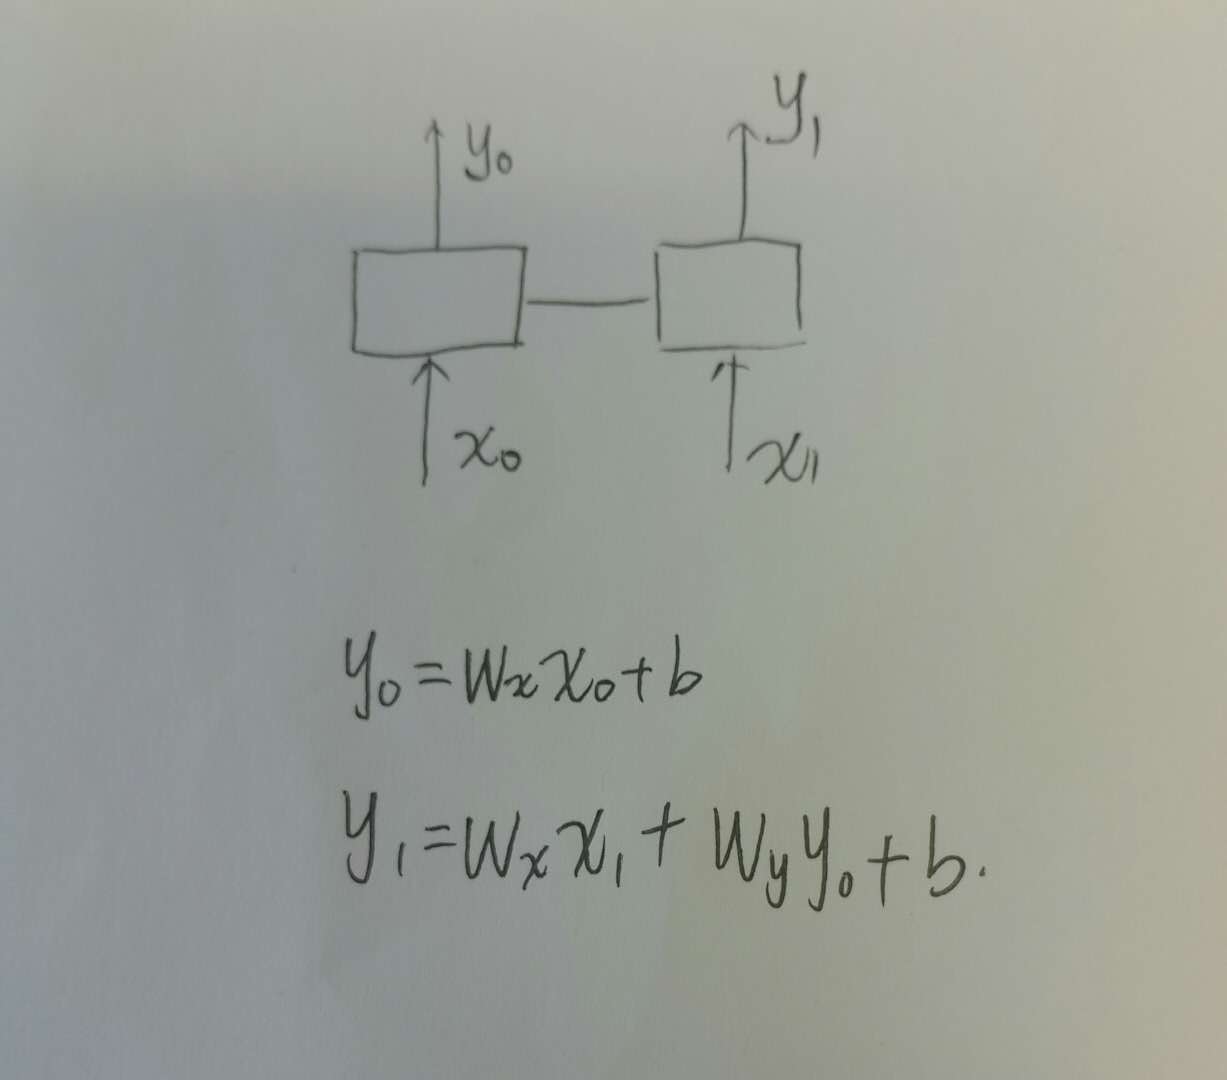 y₀ y₁
x₀ x₁
y₀ = Wₓ x₀ + b
y₁ = Wₓ x₁ + W_y y₀ + b.